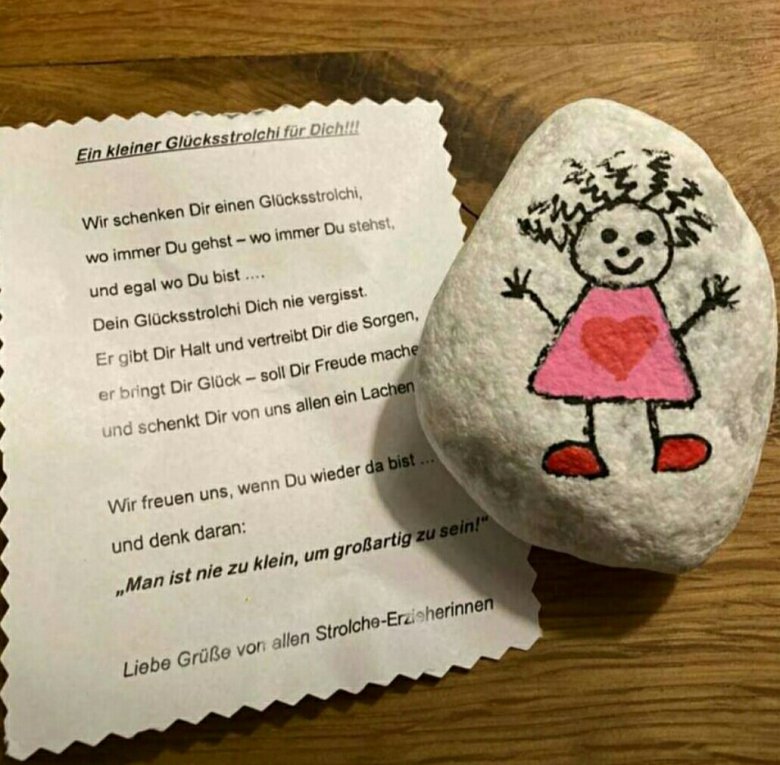 Ein kleiner Glücksstrolchi für Dich!!!
Wir schenken Dir einen Glücksstrolchi,
wo immer Du gehst – wo immer Du stehst,
und egal wo Du bist ….
Dein Glücksstrolchi Dich nie vergisst.
Er gibt Dir Halt und vertreibt Dir die Sorgen,
er bringt Dir Glück – soll Dir Freude mache
und schenkt Dir von uns allen ein Lachen
Wir freuen uns, wenn Du wieder da bist …
und denk daran:
„Man ist nie zu klein, um großartig zu sein!“
Liebe Grüße von allen Strolche-Erzieherinnen